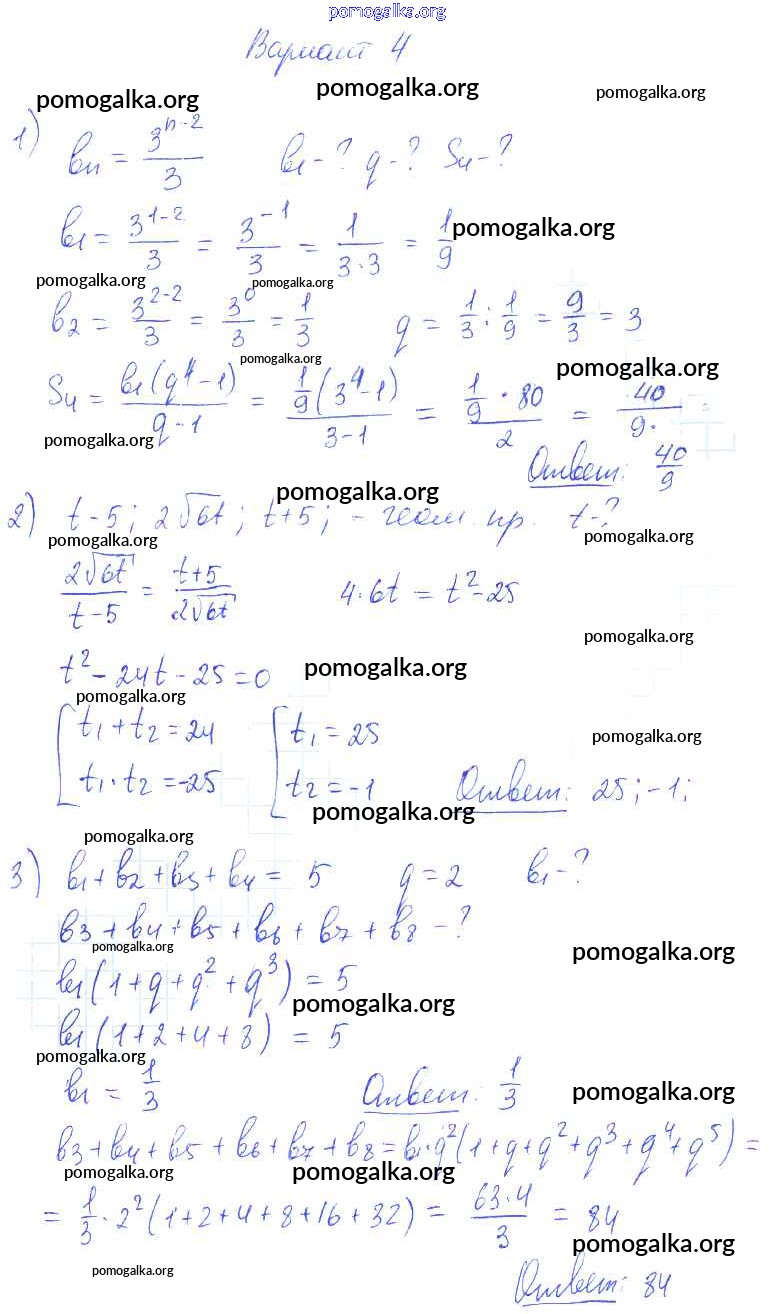 pomogalka.org
Вариант 4
pomogalka.org pomogalka.org pomogalka.org
1) bn = 3^(n-2)/3 b1 - ? q - ? S4 - ?
b1 = 3^(1-2)/3 = 3^(-1)/3 = 1/(3·3) = 1/9 pomogalka.org
pomogalka.org pomogalka.org
b2 = 3^(2-2)/3 = 3^0/3 = 1/3 q = 1/3 : 1/9 = 9/3 = 3
pomogalka.org pomogalka.org
S4 = b1(q^4-1)/(q-1) = 1/9(3^4-1)/(3-1) = (1/9 · 80)/2 = 40/9 =
pomogalka.org
Ответ: 40/9
pomogalka.org
2) t-5; 2√6t; t+5; - геом. пр. t-?
pomogalka.org pomogalka.org
2√6t/(t-5) = (t+5)/2√6t 4·6t = t²-25
pomogalka.org
t² - 24t - 25 = 0 pomogalka.org
pomogalka.org
t1 + t2 = 24 t1 = 25 pomogalka.org
t1 · t2 = -25 t2 = -1 Ответ: 25; -1;
pomogalka.org
pomogalka.org
3) b1 + b2 + b3 + b4 = 5 q = 2 b1 - ?
b3 + b4 + b5 + b6 + b7 + b8 - ?
pomogalka.org pomogalka.org
b1(1 + q + q² + q³) = 5
pomogalka.org
b1(1+2+4+8) = 5
pomogalka.org
b1 = 1/3 Ответ: 1/3 pomogalka.org
b3 + b4 + b5 + b6 + b7 + b8 = b1·q²(1+q+q²+q³+q⁴+q⁵) =
pomogalka.org pomogalka.org
= 1/3 · 2²(1+2+4+8+16+32) = 63·4/3 = 84
pomogalka.org
pomogalka.org Ответ: 84